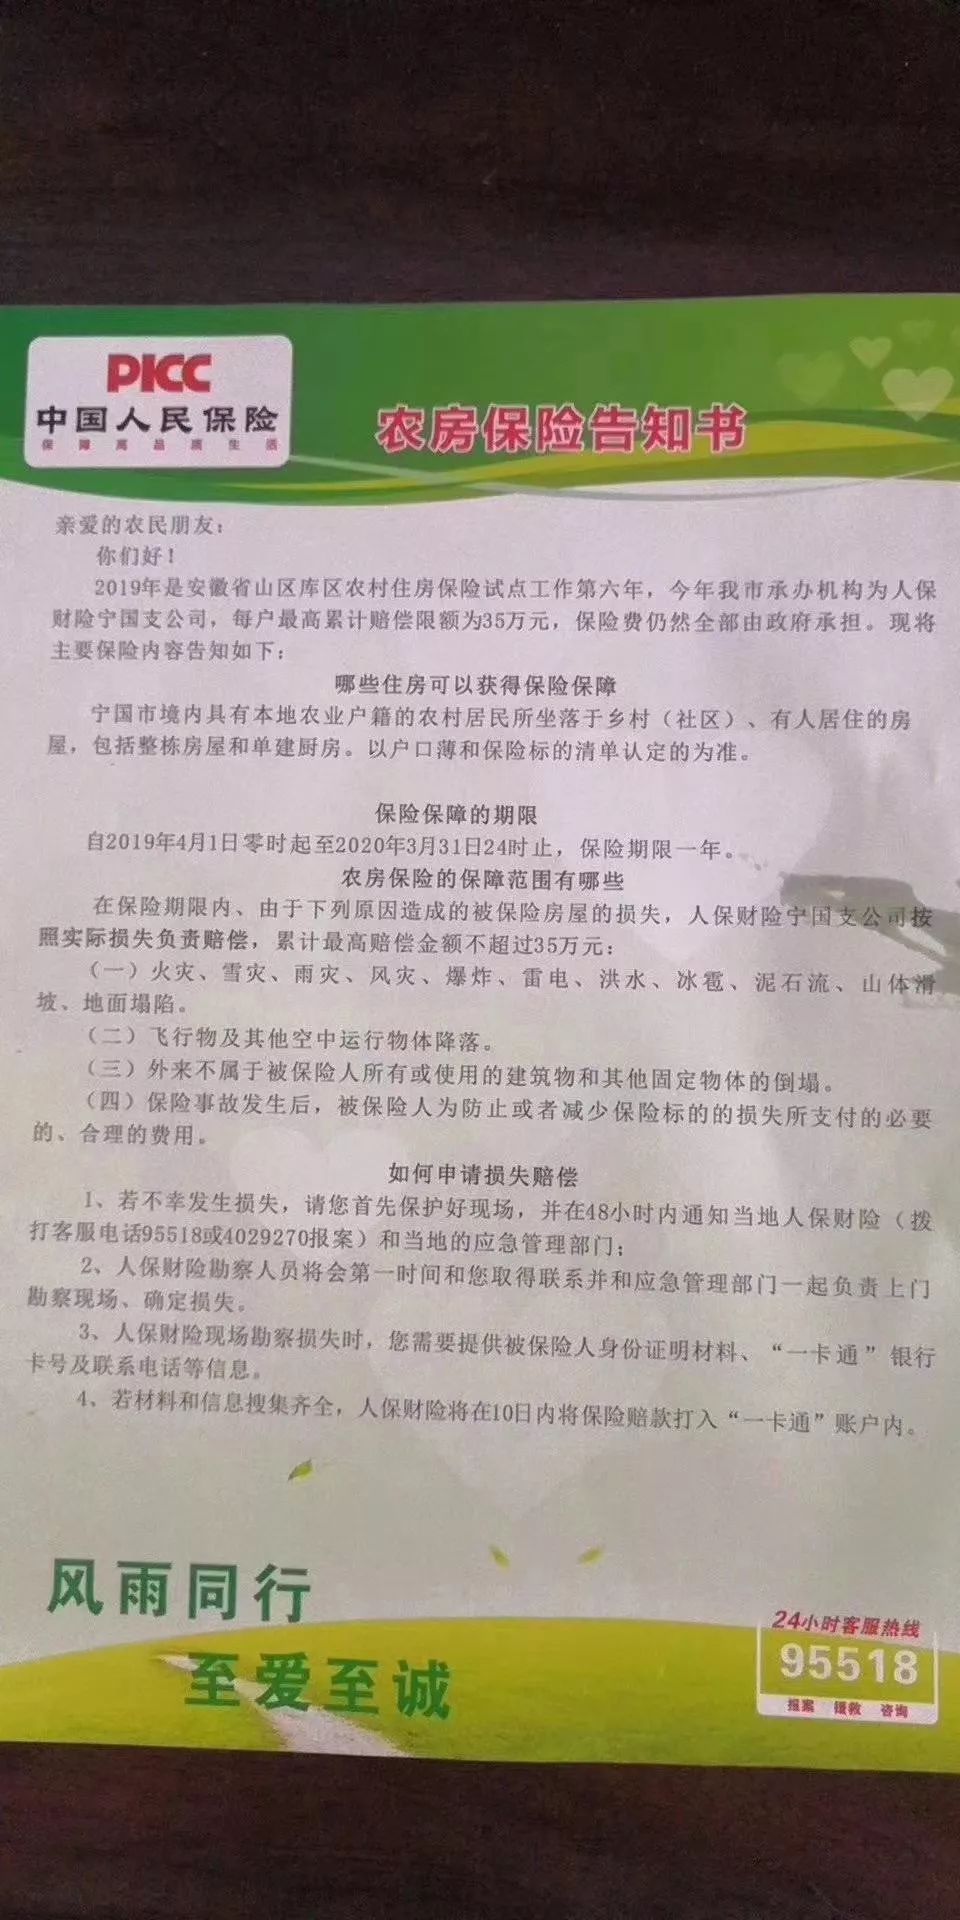 PICC
中国人民保险
保障高品质生活
农房保险告知书
亲爱的农民朋友：
你们好！
2019年是安徽省山区库区农村住房保险试点工作第六年，今年我市承办机构为人保
财险宁国支公司，每户最高累计赔偿限额为35万元，保险费仍然全部由政府承担。现将
主要保险内容告知如下：
哪些住房可以获得保险保障
宁国市境内具有本地农业户籍的农村居民所坐落于乡村（社区）、有人居住的房
屋，包括整栋房屋和单建厨房。以户口薄和保险标的清单认定的为准。
保险保障的期限
自2019年4月1日零时起至2020年3月31日24时止，保险期限一年。
农房保险的保障范围有哪些
在保险期限内、由于下列原因造成的被保险房屋的损失，人保财险宁国支公司按
照实际损失负责赔偿，累计最高赔偿金额不超过35万元：
（一）火灾、雪灾、雨灾、风灾、爆炸、雷电、洪水、冰雹、泥石流、山体滑
坡、地面塌陷。
（二）飞行物及其他空中运行物体降落。
（三）外来不属于被保险人所有或使用的建筑物和其他固定物体的倒塌。
（四）保险事故发生后，被保险人为防止或者减少保险标的的损失所支付的必要
的、合理的费用。
如何申请损失赔偿
1、若不幸发生损失，请您首先保护好现场，并在48小时内通知当地人保财险（拨
打客服电话95518或4029270报案）和当地的应急管理部门；
2、人保财险勘察人员将会第一时间和您取得联系并和应急管理部门一起负责上门
勘察现场、确定损失。
3、人保财险现场勘察损失时，您需要提供被保险人身份证明材料、“一卡通”银行
卡号及联系电话等信息。
4、若材料和信息搜集齐全，人保财险将在10日内将保险赔款打入“一卡通”账户内。
风雨同行
至爱至诚
24小时客服热线
95518
报案 援救 咨询